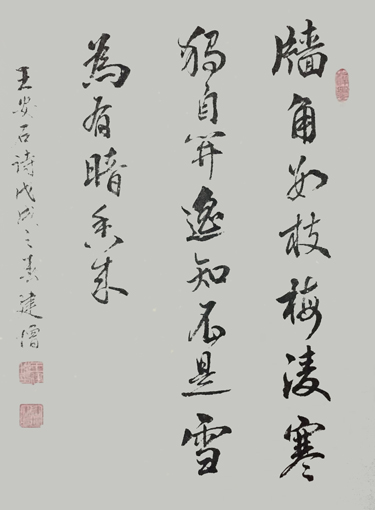 牆角数枝梅凌寒
獨自開遙知不是雪
為有暗香來
王安石詩戊戌之春建